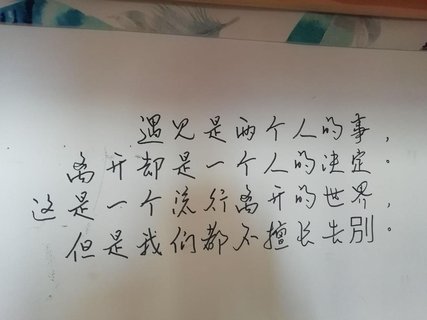 遇见是两个人的事，
离开却是一个人的决定。
这是一个流行离开的世界，
但是我们都不擅长告别。